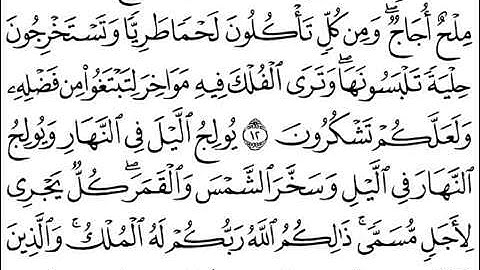 مِلْحٌ أُجَاجٌ ۖ وَمِن كُلٍّ تَأْكُلُونَ لَحْمًا طَرِيًّا وَتَسْتَخْرِجُونَ
حِلْيَةً تَلْبَسُونَهَا ۖ وَتَرَى ٱلْفُلْكَ فِيهِ مَوَاخِرَ لِتَبْتَغُوا۟ مِن فَضْلِهِۦ
وَلَعَلَّكُمْ تَشْكُرُونَ ١٢ يُولِجُ ٱلَّيْلَ فِى ٱلنَّهَارِ وَيُولِجُ
ٱلنَّهَارَ فِى ٱلَّيْلِ وَسَخَّرَ ٱلشَّمْسَ وَٱلْقَمَرَ ۖ كُلٌّ يَجْرِى
لِأَجَلٍ مُّسَمًّى ۚ ذَٰلِكُمُ ٱللَّهُ رَبُّكُمْ لَهُ ٱلْمُلْكُ ۚ وَٱلَّذِينَ